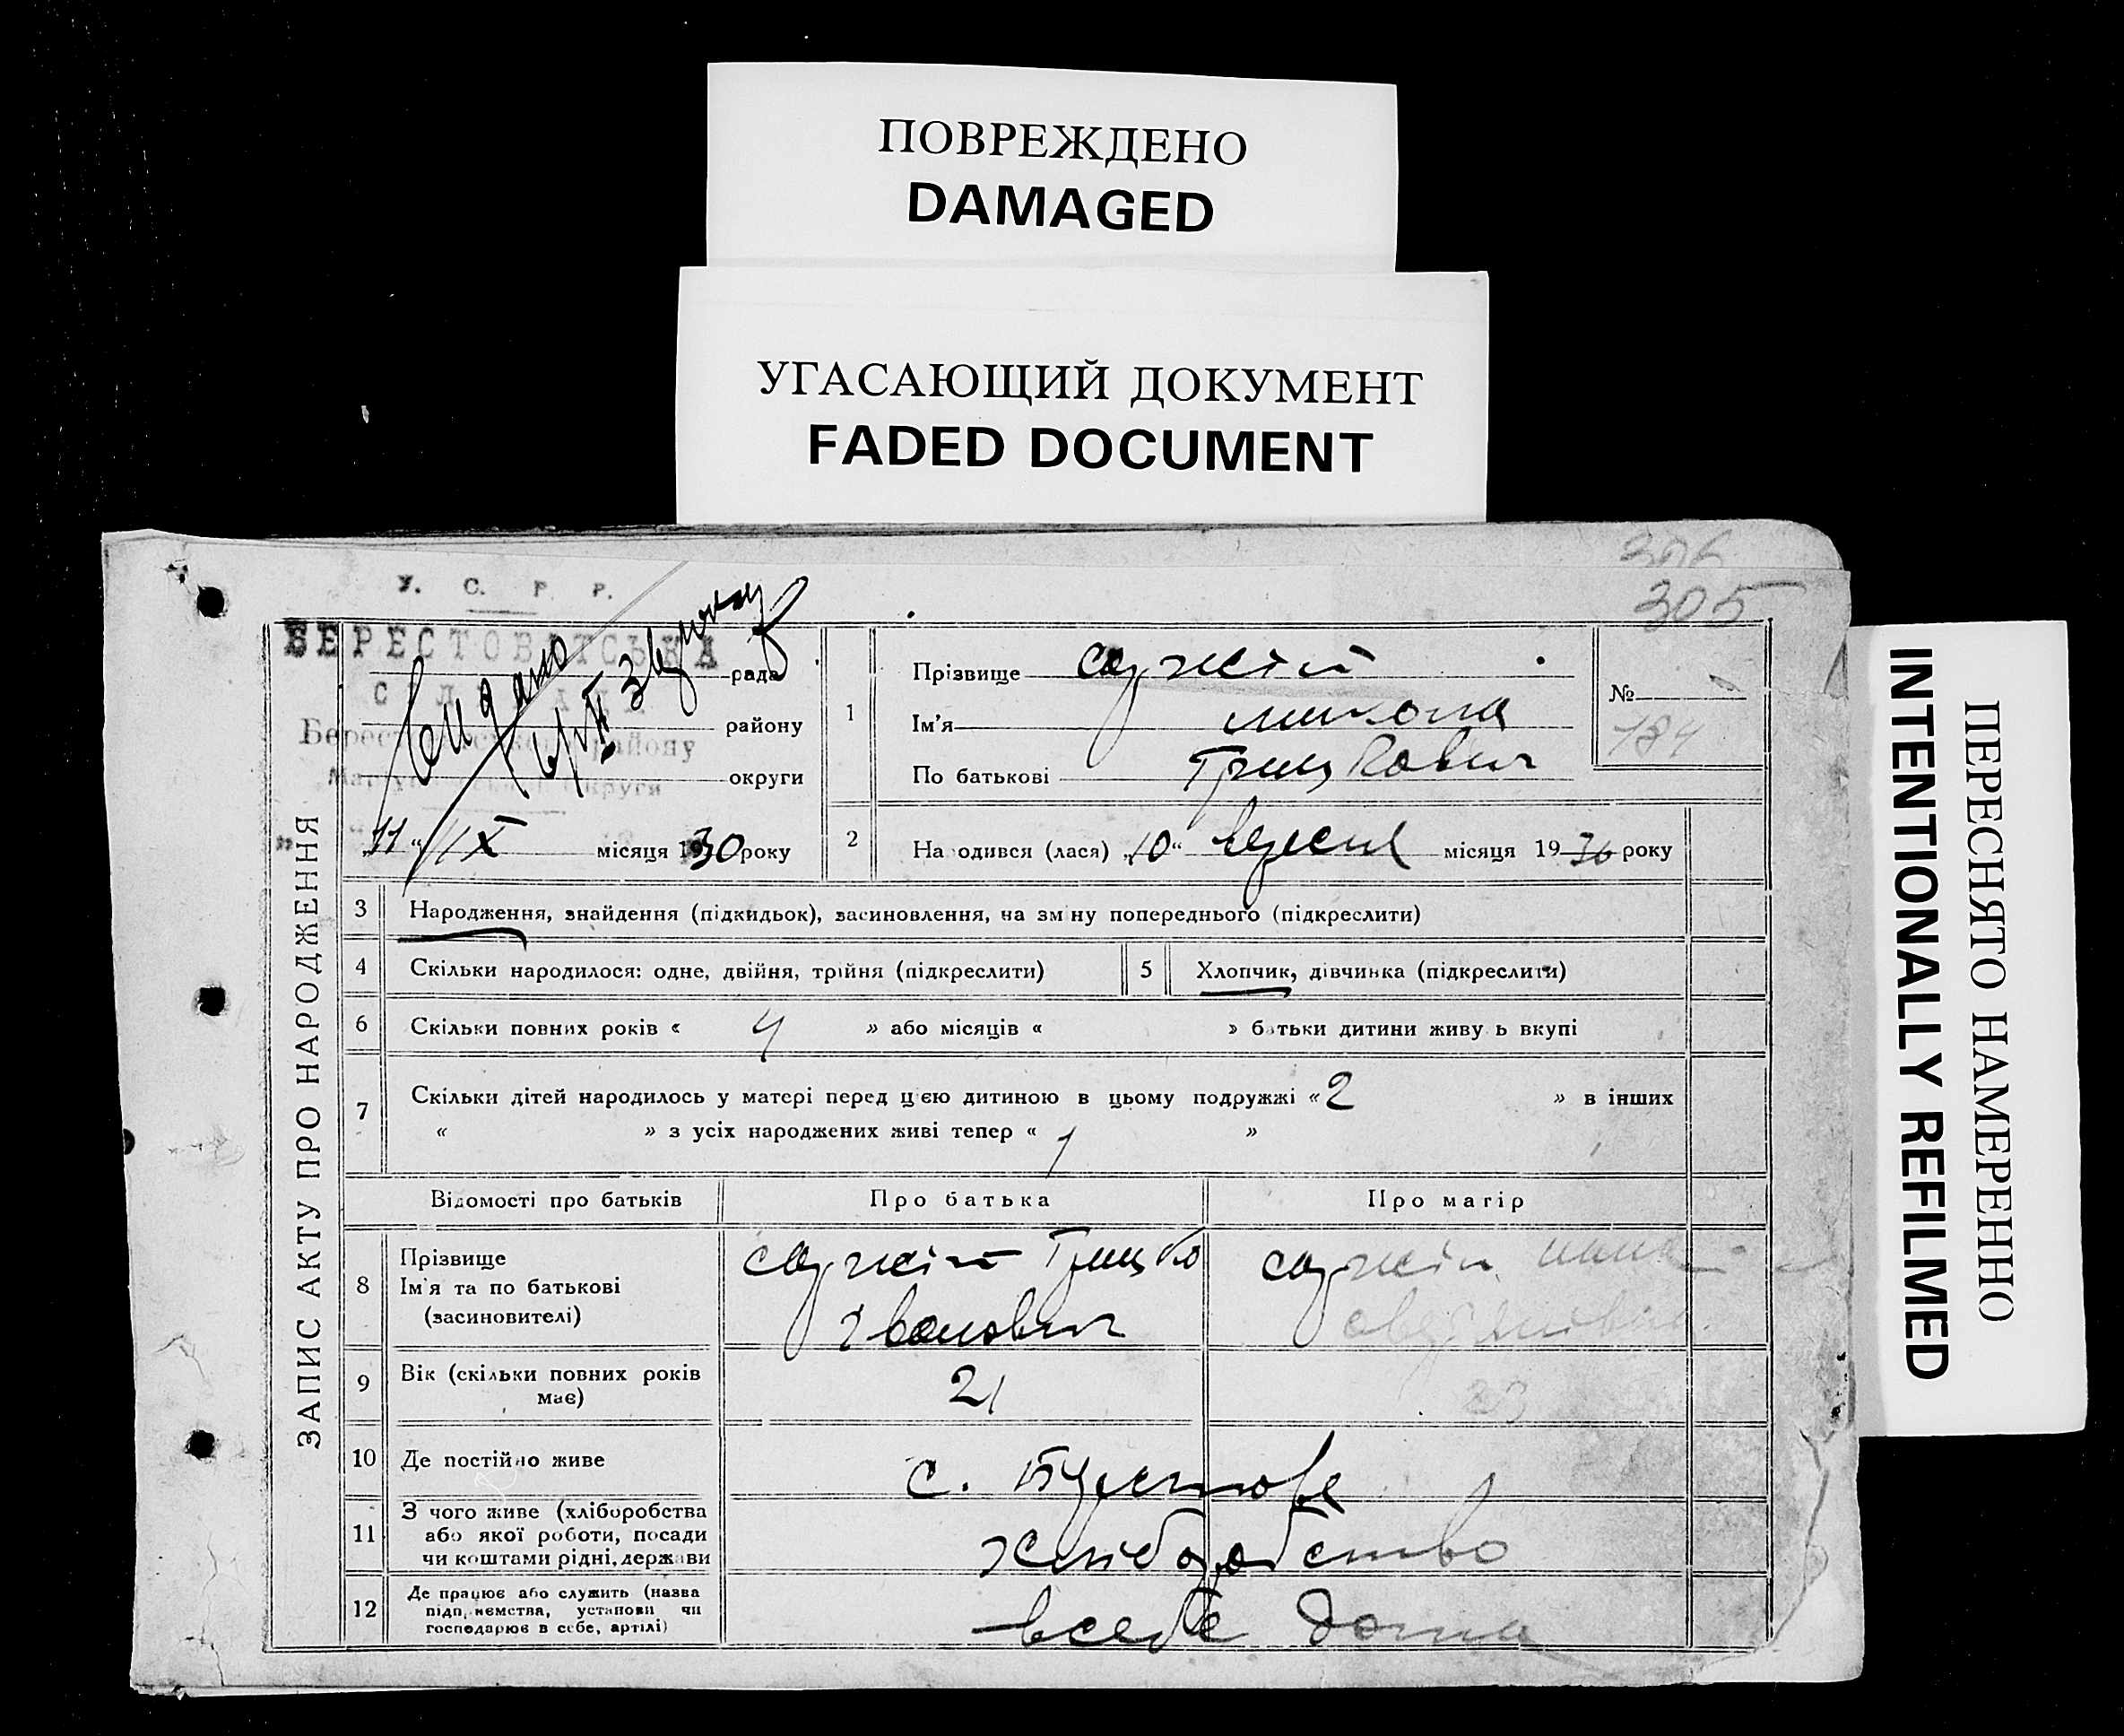 ПОВРЕЖДЕНО
DAMAGED
УГАСАЮЩИЙ ДОКУМЕНТ
FADED DOCUMENT
ПЕРЕСНЯТО НАМЕРЕННО
INTENTIONALLY REFILMED
306
305
У. С. Р. Р.
БЕРЕСТОВАТСЬКА
рада
району
округи
Видано
„11“ IX місяця 1930 року
ЗАПИС АКТУ ПРО НАРОДЖЕННЯ
1 Прізвище Сужій
Ім'я Микола
По батькові Грицькович
№
184
2 На одився (лася) „10“ вересня місяця 1930 року
3 Народження, знайдення (підкидьок), засиновлення, на зм ну попереднього (підкреслити)
4 Скільки народилося: одне, двійня, трійня (підкреслити)
5 Хлопчик, дівчинка (підкреслити)
6 Скільки повних років « 4 » або місяців « » батьки дитини живу ь вкупі
7 Скільки дітей народилось у матері перед цією дитиною в цьому подружжі « 2 » в інших
« » з усіх народжених живі тепер « 1 »
Відомості про батьків Про батька Про матір
8 Прізвище
Ім'я та по батькові
(засиновителі)
Сужій Грицько
Іванович
Сужій
9 Вік (скільки повних років
має)
21
23
10 Де постійно живе
с.
11 З чого живе (хліборобства
або якої роботи, посади
чи коштами рідні, держави
хліборобство
12 Де працює або служить (назва
підприємства, установи чи
господарює в себе, артілі)
в себе дома